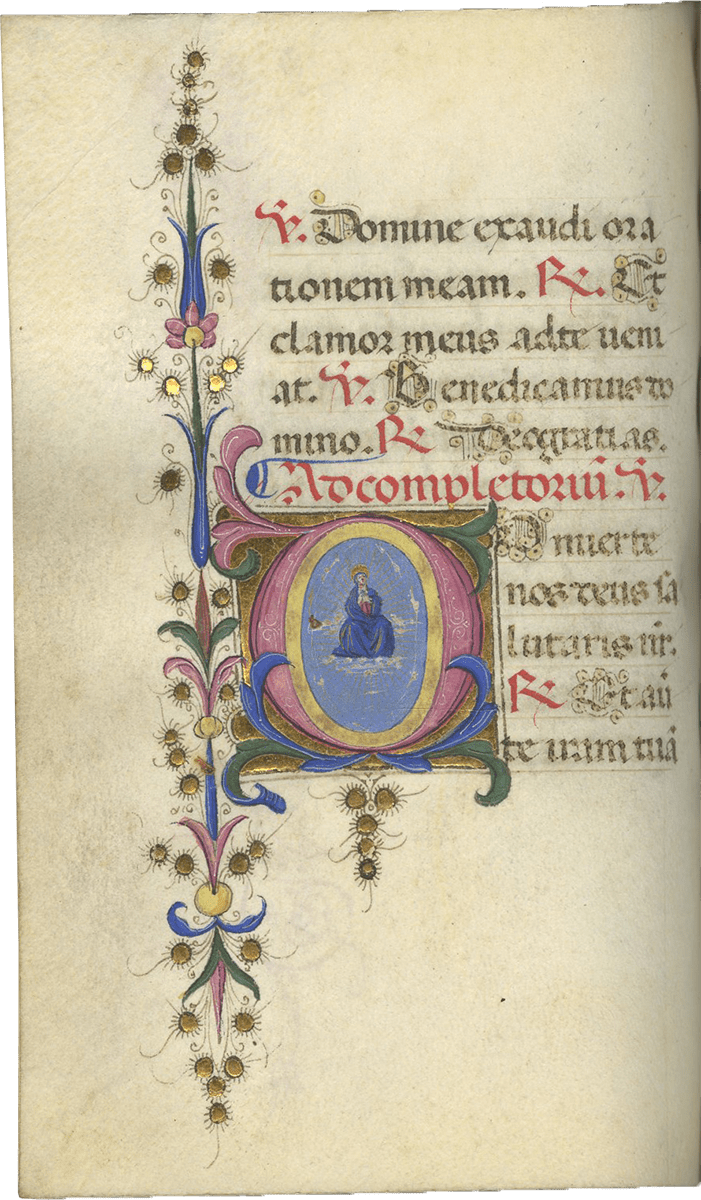 ℣. Domine exaudi ora
tionem meam. ℟. Et
clamor meus ad te ueni
at. ℣. Benedicamus do
mino. ℟ Deo gratias.
Ad completoriū. ℣.
Conuerte
nos deus sa
lutaris nr̄.
℟ Et aū
te iram tuā